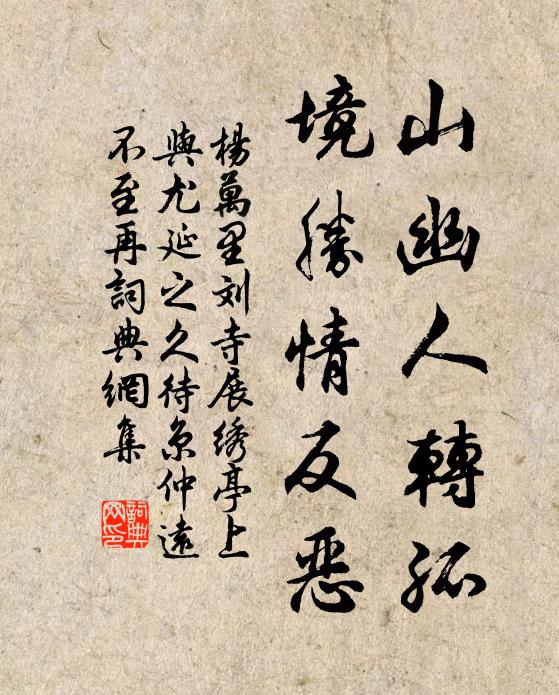 山幽人轉孤
境勝情反惡
楊萬里刘寺展绣亭上
與尤延之久待京仲遠
不至再詞典網集
詞典
网印